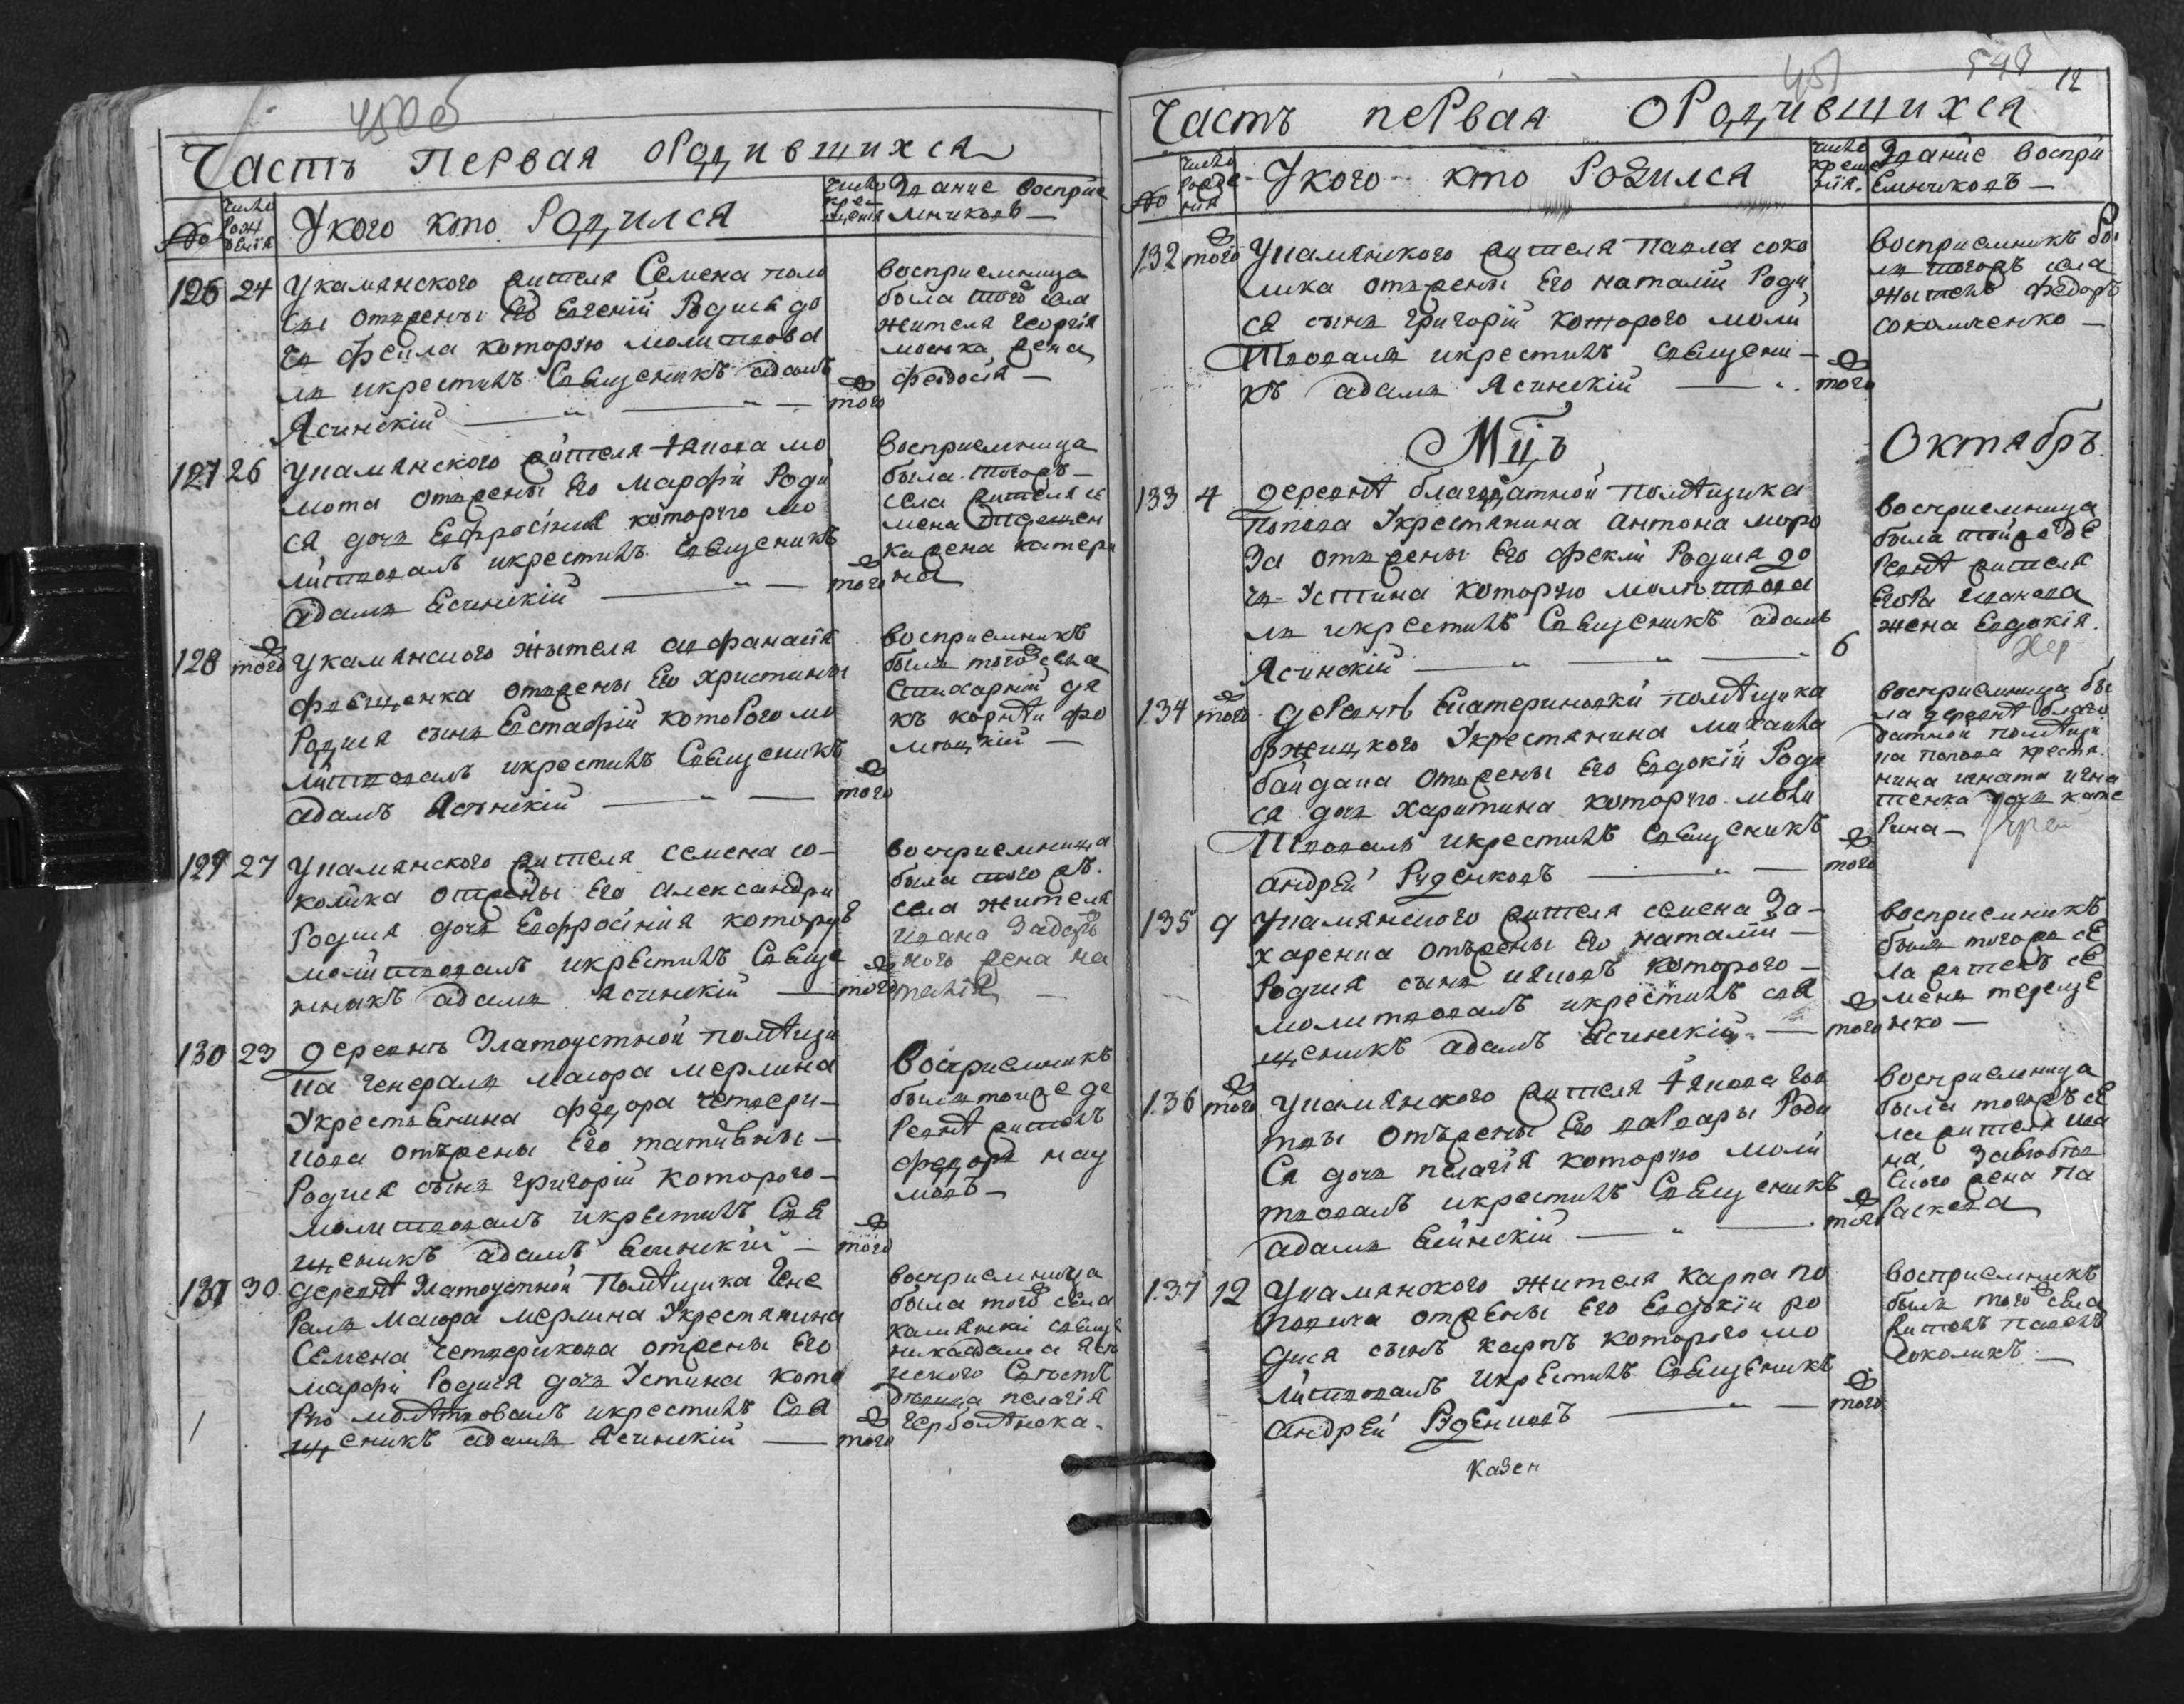 450об
Часть первая о родившихся
№ число рождения У кого кто родился число крещения звание восприемниковъ
126 24 У камянского жителя Семена поло
от жены его Евгеніи Родиласъ до
чъ Феклa которую молитвова
лъ и крестилъ Священикъ адамъ
Ясинскій — того
восприемница
была того села
жителя Георгія
жена
феодосія —
127 26 У камянского жителя Якова мо
мота от жены его Марфы Роди
ся дочъ Евфросінія которую мо
литвовалъ и крестилъ Священикъ
адамъ Есинскій — того
восприемница
была тогожъ —
села жителя Се
мена
ка жена катери
на
128 того У камянского жытеля Афанасія
фещенка отжены Его христины
Родися сынъ Естафій которого мо
литвовалъ и крестилъ Священикъ
адамъ Ясинскій — того
восприемникъ
былъ того села
Стихарній дя
къ корнѣи фо
129 27 У камянского жителя Семена Со-
колика отжены Его александры
Родися дочъ Евфросінія которую
молитвовалъ и крестилъ Свяще
никъ адамъ Ясинскій — того
восприемница
была того жъ.
села жителя
ивана
ного жена на
талія —
130 29 деревнѣ Златоустной помѣщи
ка Генералъ маіора мерлина
у крестьенина федора четвери-
кова отжены Его татіяны —
Родися сынъ григорій которого —
молитвовалъ и крестилъ Свя
щеникъ адамъ Есинскій — того
восприемникъ
былъ тоиже де
ревнѣ житель
федоръ нау
мовъ —
131 30 деревнѣ Златоустной Помѣщика Гене
ралъ Маіора мерлина у крестянина
Семена четверикова отжены Его
марфы Родися дочъ Устина кото
рую молитвовалъ и крестилъ Свя
щеникъ адамъ Ясинскій — того
восприемница
была того села
камянки свяще
ника адама Яси
нского
пелагія
451 12
Часть первая о родившихся
№ число рожденія У кого кто родился число крещенія Званіе восприемниковъ —
132 того У камянского жителя Павла соко
лика отжены его наталіи Роди
ся сынъ григорій которого моли
твовалъ и крестилъ Священи —
къ адамъ Ясинскій — того
восприемникъ бы
лъ тогожъ села
жытель федоръ
соколченко —
Мцъ Октябръ
133 4 деревнѣ благодатной помѣщика
попова у крестянина антона моро
за отжены Его феклы Родися до
чъ Устина которую молитвова
лъ и крестилъ Священикъ адамъ
Ясинскій — 6
восприемница
была тойже де
ревнѣ жителя
Егора иванова
жена Евдокія.
134 того деревнѣ Екатериновки помѣщика
у крестянина михаила
байдака отжены Его Евдокіи Роди
ся дочъ харитина которую моли
твовалъ и крестилъ Священикъ
андрей Руденковъ — того
восприемница бы
ла деревнѣ благо
датной помѣщи
ка попова крестя
нина игната игна
тенка дочъ кате
рина —
135 9 У камянского жителя семена За-
харенка отжены Его наталіи —
Родися сынъ ияковъ которого —
молитвовалъ и крестилъ свя
щеникъ адамъ Ясинскій — того
восприемникъ
былъ тогожъ се
ла житель се
менъ тереще
нко —
136 того У камянского жителя Якова
отжены Его варвары Роди
ся дочъ пелагія которую моли
твовалъ и крестилъ Священикъ
адамъ Есинскій — того
восприемница
была тогожъ се
ла жителя ива
на
ского жена па
раскева
137 12 У камянского жителя карпа по
повича отжены Его Евдокіи ро
дися сынъ карпъ которого мо
литвовалъ и крестилъ Священикъ
андрей Руденковъ — того
восприемникъ
былъ того села
житель павелъ
соколикъ —
казен